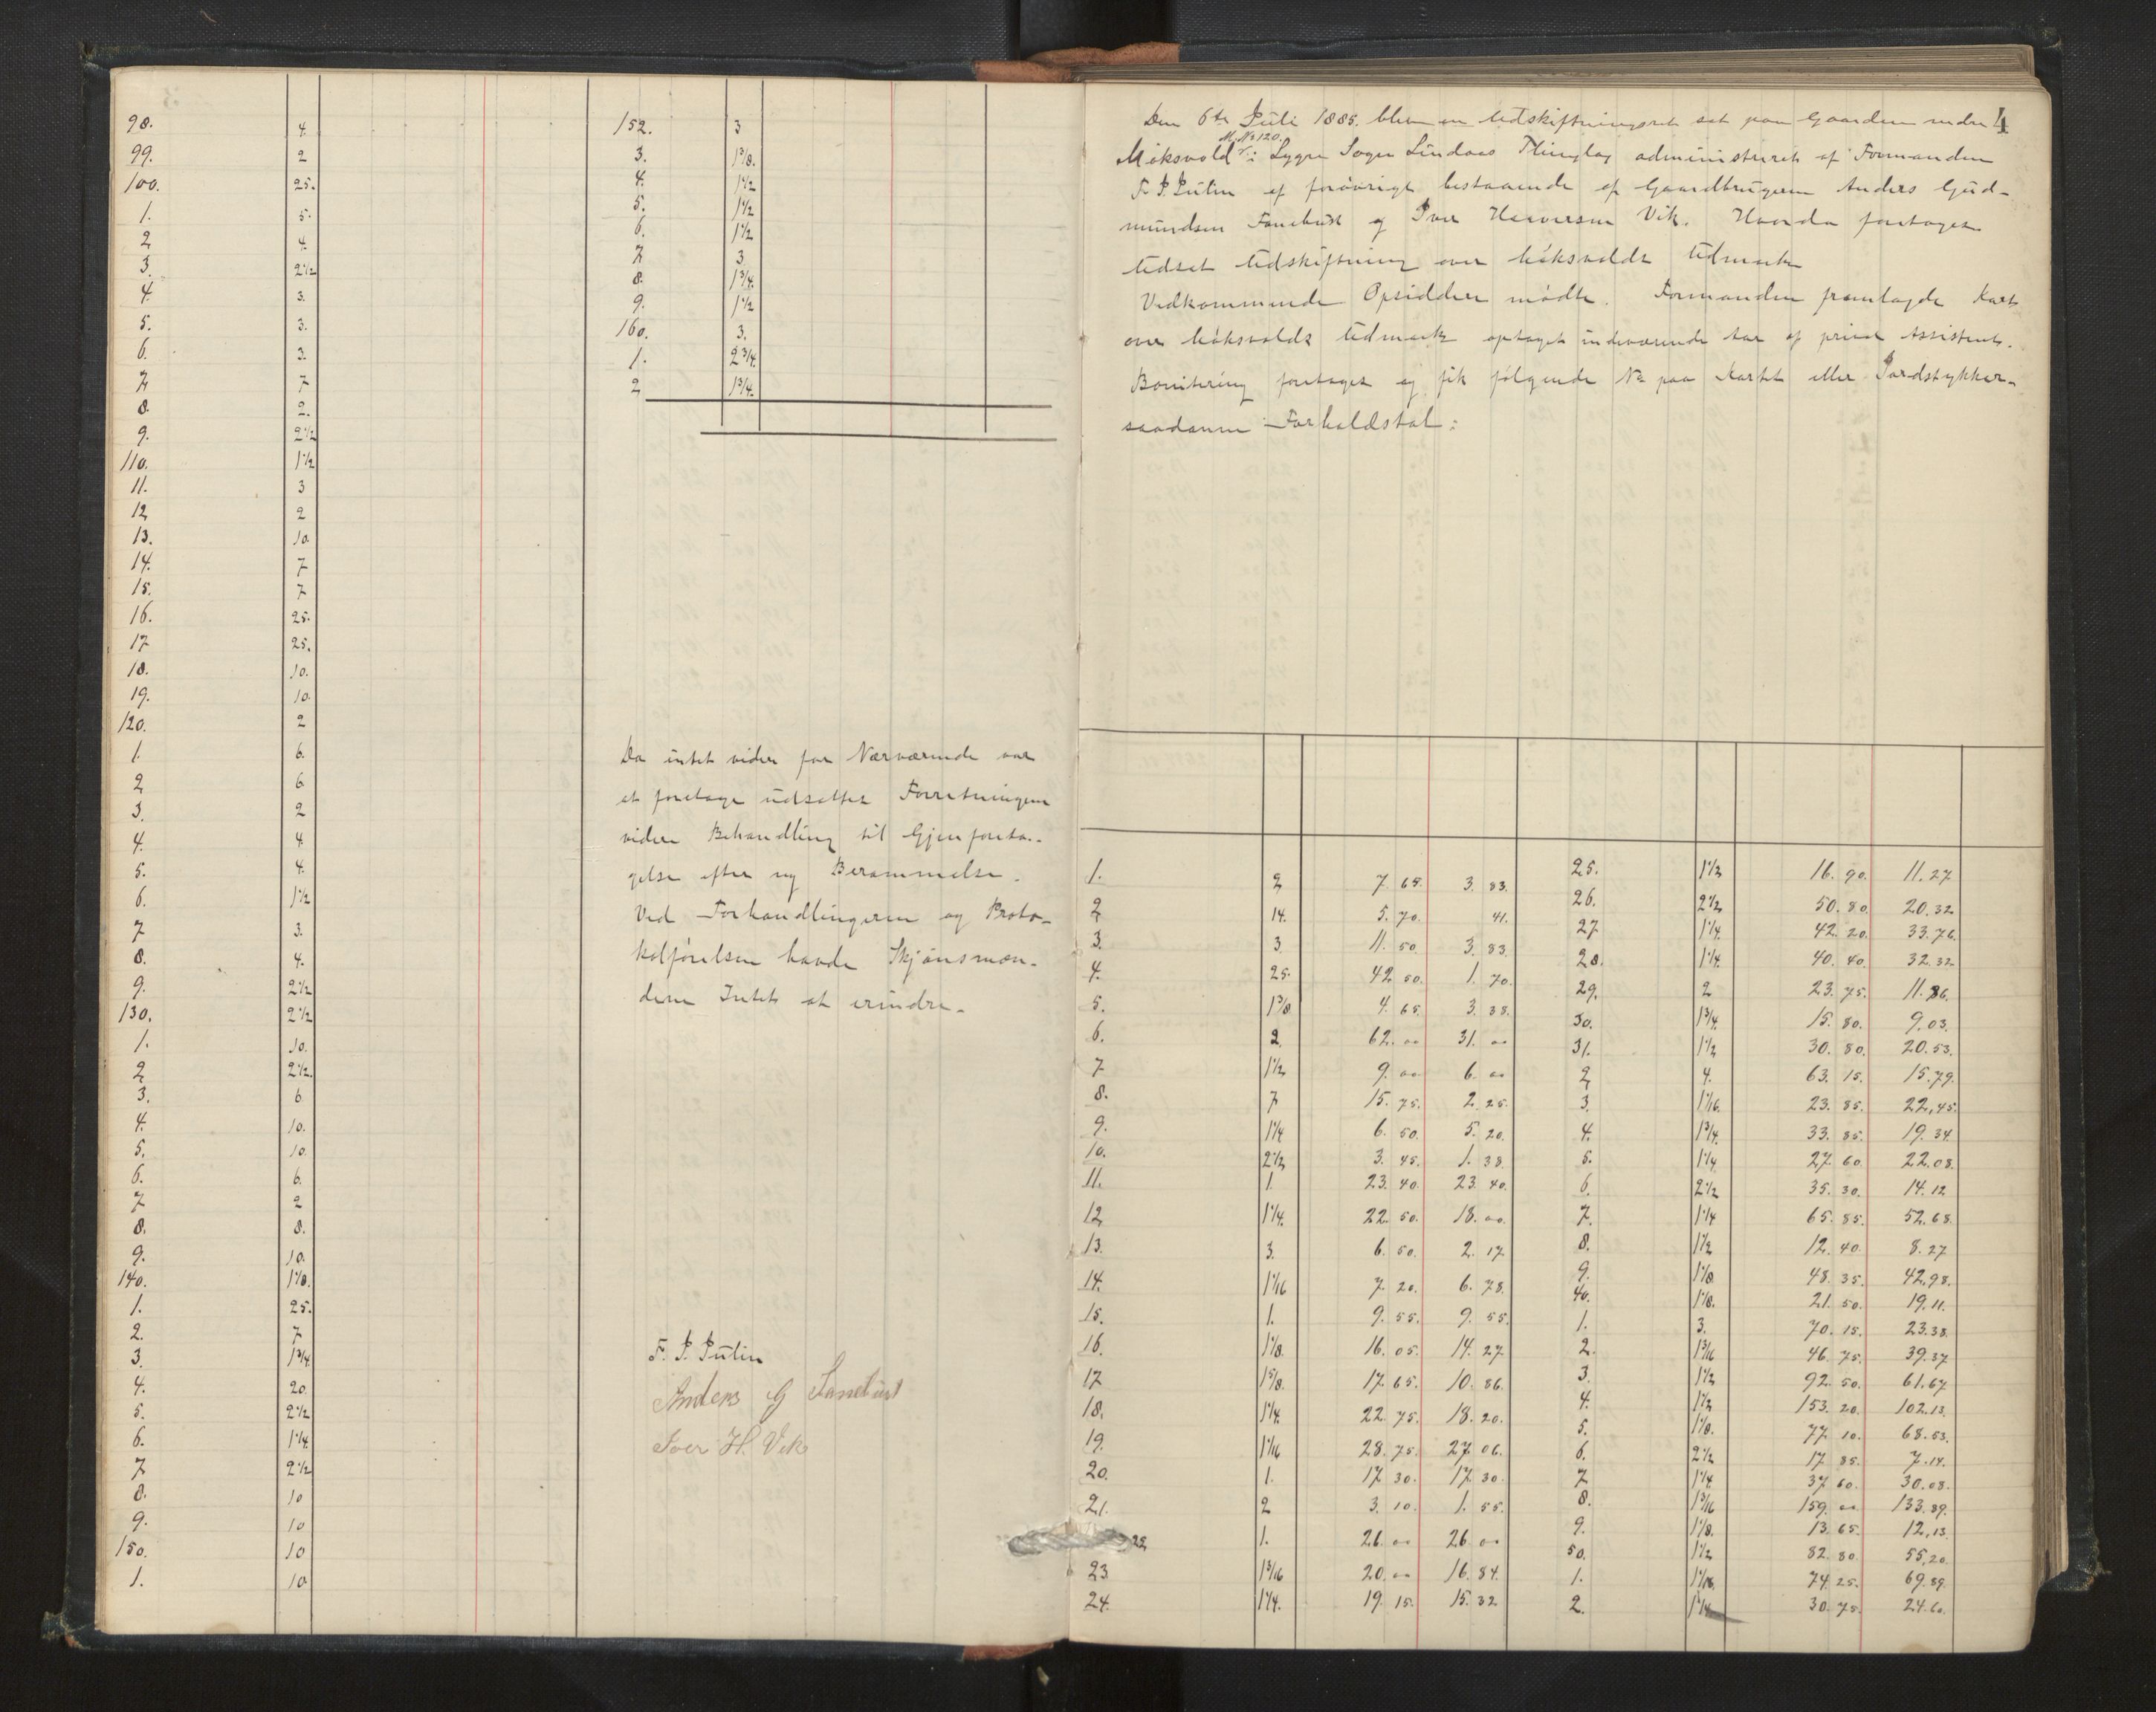 98. 4.
99. 2
100. 25.
1. 5.
2 4.
3. 2½
4. 3.
5. 3.
6. 3.
7. 7
8. 2.
9. 2½
110. 1½
11. 3
12 2
13. 10
14. 7
15. 7
16. 25.
17 25.
18. 10.
19. 10.
120. 2
1. 6.
2 6
3. 2
4. 4.
5. 4.
6. 1½
7 3.
8. 4.
9. 2½
130. 2½
1. 10.
2 2½.
3. 6
4. 10.
5. 10.
6. 6.
7 2
8. 8.
9. 10.
140. 1⅛.
1. 25.
2. 7
3. 1¾
4. 20.
5. 2½
6. 1¼.
7 2½
8. 10
9. 10
150. 10
1. 10
152. 3
3. 1⅜.
4. 1½
5. 1½
6. 1½
7 3
8. 1¾.
9. 1½
160. 3.
1. 2¾.
2 1¾.
Da intet videre for Nærværende var
at foretage udsattes Forretningens
videre Behandling til Gjenforeta-
gelse efter ny Berammelse.
Ved Forhandlingerne og Proto-
kolførelsen havde Skjönsmæn-
dene Intet at erindre.
F. P. Julin
Anders G Fanebust
Iver H. Vik
4
Den 6te Juli 1885. blev en Udskiftningsret sat paa Gaarden indre
M. No 120.
Möksvold i Lygre Sogn Lindaas Thinglag administreret af Formanden
F. P. Julin og forövrigt bestaaende af Gaardbrugerne Anders Gud-
mundsen Fanebust og Iver Haaversen Vik. Hvorda foretoges
Udsat Udskiftning over Möksvolds Udmark
Vedkommende Opsiddere mödte. Formanden fremlagde Kart
over Möksvolds Udmark optaget indeværende Aar af privat Assistent.
Bonitering foretoges og fik fölgende No paa Kartet eller Jordstykker-
saadanne Forholdstal:
1. 2 7. 65. 3. 83.
2 14. 5. 70. 41.
3. 3. 11. 50 3. 83.
4. 25. 42. 50. 1. 70.
5. 1⅜. 4. 65. 3. 38.
6. 2. 62. 00 31. 00
7 1½ 9. 00 6. 00
8. 7 15. 75. 2. 25.
9. 1¼ 6. 50. 5. 20.
10. 2½ 3. 45. 1. 38.
11. 1. 23. 40. 23. 40.
12 1¼. 22. 50. 18. 00.
13. 3. 6. 50. 2. 17
14. 1 1/16 7. 20. 6. 78.
15. 1. 9. 55. 9. 55.
16. 1⅛. 16. 05. 14. 27
17 1⅝. 17. 65. 10. 86.
18. 1¼. 22. 75. 18. 20.
19. 1 1/16 28. 75. 27 06.
20. 1. 17. 30. 17. 30.
21. 2 3. 10. 1. 55.
22. 1. 26. 00 26. 00
23 1 3/16 20. 00 16. 84.
24. 1¼. 19. 15. 15. 32
25. 1½ 16. 90. 11. 27
26. 2½ 50. 80. 20. 32
27 1¼. 42. 20. 33. 76.
28. 1¼. 40. 40. 32. 32
29. 2 23. 75. 11. 86.
30. 1¾. 15. 80. 9. 03.
31. 1½ 30. 80. 20. 53.
2 4. 63. 15. 15. 79.
3. 1 1/16. 23. 85. 22, 45.
4. 1¾. 33. 85. 19. 34
5. 1¼ 27. 60. 22. 08.
6. 2½ 35. 30. 14. 12
7. 1¼ 65. 85. 52. 68.
8. 1½ 12. 40. 8. 27
9. 1⅛ 48. 35. 42. 98.
40. 1⅛. 21. 50. 19. 11.
1. 3. 70. 15. 23. 38.
2. 1 3/16 46. 75. 39. 37
3. 1½ 92. 50. 61. 67
4. 1½ 153. 20. 102. 13.
5. 1⅛. 77. 10. 68. 53.
6. 2½ 17. 85. 7. 14.
7 1¼. 37. 60. 30. 08.
8. 1 3/16 159. 00 133. 89.
9. 1⅛. 13. 65. 12, 13.
50. 1½ 82. 80. 55, 20.
1. 1 1/16. 74. 25. 69. 89.
2. 1¼ 30. 75. 24. 60.